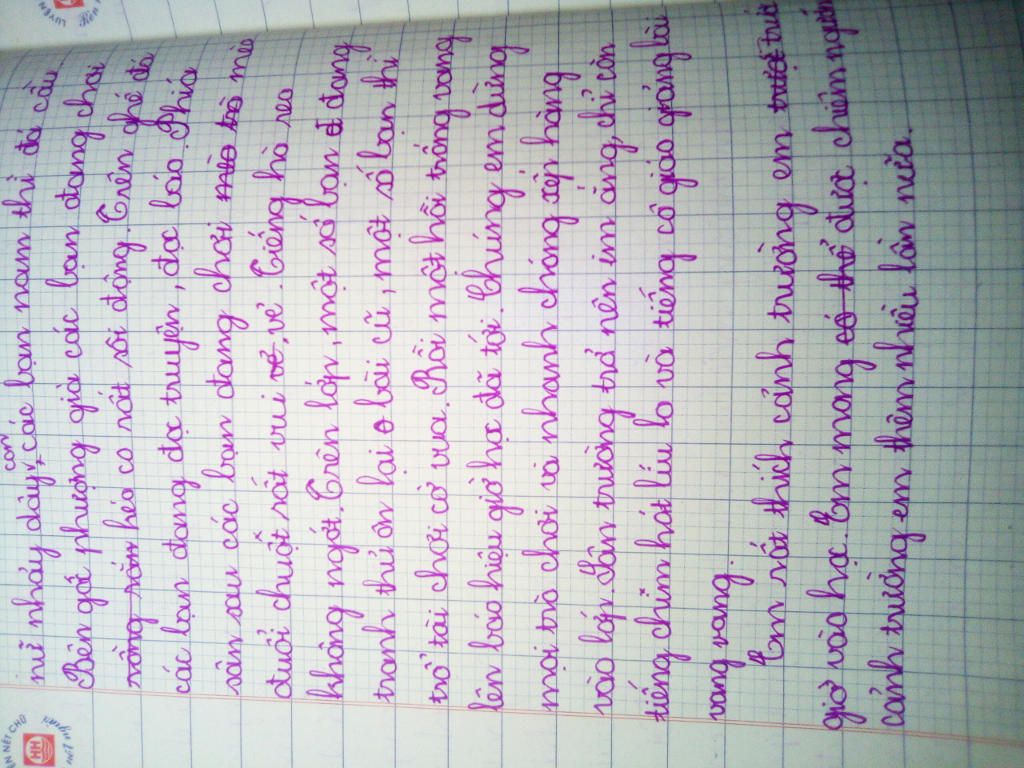 nữ nhảy dây, các bạn nam thì đá cầu
con
Bên gốc phượng già các bạn đang chơi
rồng rắn kéo co rất sôi động. Trên ghế đá
các bạn đang đọc truyện, đọc báo. Phía
sân sau các bạn đang chơi mèo tr mèo
đuổi chuột rất vui vẻ, vẻ. Tiếng hò reo
không ngớt. Trên lớp, một số bạn đ đang
tranh thủ ôn lại bài cũ, một số bạn thì
trổ tài chơi cờ vua. Rồi một hồi trống vang
lên báo hiệu giờ học đã tới. Chúng em dừng
mọi trò chơi và nhanh chóng xếp hàng
vào lớp. Sân trường trở nên im ắng, chỉ còn
tiếng chim hót líu lo và tiếng cô giáo giảng bài
vang vang.
Em rất thích cảnh trường em trước
giờ vào học. Em mong có thể được chiêm ngưỡng
cảnh trường em thêm nhiều lần nữa.
LUYỆN
Rèn
N NÉT CHỮ
HH
nết người